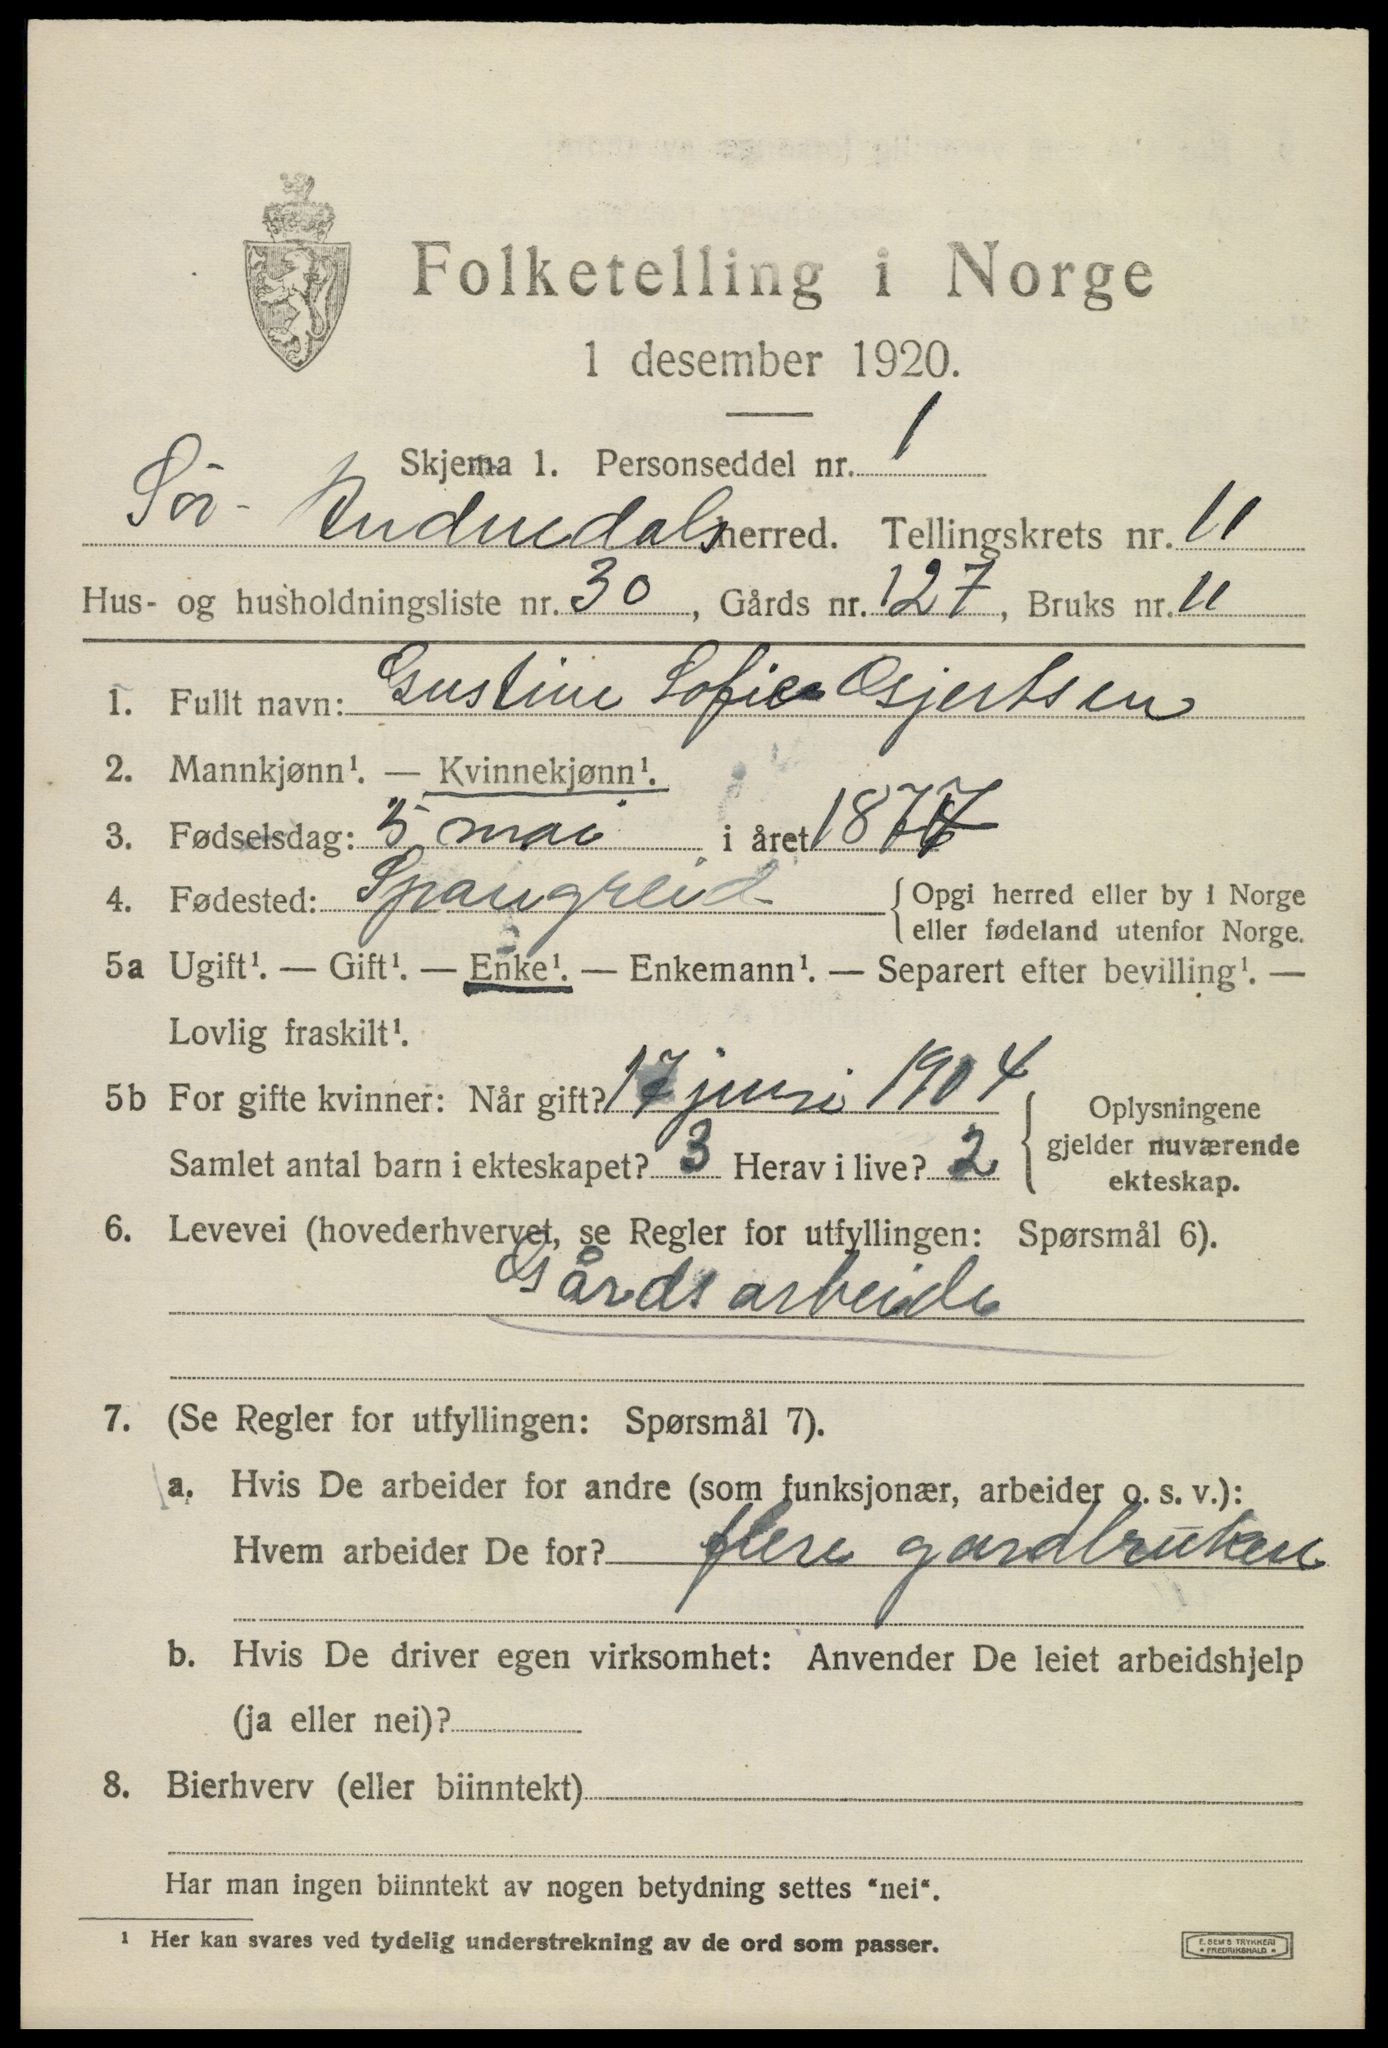 Folketelling i Norge
1 desember 1920.
Skjema 1. Personseddel nr. 1
Sör-Audnedals herred. Tellingskrets nr. 11
Hus- og husholdningsliste nr. 30, Gårds nr. 127, Bruks nr. 11
1. Fullt navn: Gustine Sofie Gjertsen
2. Mannkjønn¹. — Kvinnekjønn¹.
3. Fødselsdag: 5 mai i året 1877
4. Fødested: Spangreid { Opgi herred eller by i Norge
eller fødeland utenfor Norge.
5a Ugift¹. — Gift¹. — Enke¹. — Enkemann¹. — Separert efter bevilling¹. —
Lovlig fraskilt¹.
5b For gifte kvinner: Når gift? 17 juni 1904
Samlet antal barn i ekteskapet? 3 Herav i live? 2
{ Oplysningene
gjelder nuværende
ekteskap.
6. Levevei (hovederhvervet, se Regler for utfyllingen: Spørsmål 6).
Gårdsarbeide
7. (Se Regler for utfyllingen: Spørsmål 7).
a. Hvis De arbeider for andre (som funksjonær, arbeider o. s. v.):
Hvem arbeider De for? flere gardbruken
b. Hvis De driver egen virksomhet: Anvender De leiet arbeidshjelp
(ja eller nei)?
8. Bierhverv (eller biinntekt)
Har man ingen biinntekt av nogen betydning settes "nei".
¹ Her kan svares ved tydelig understrekning av de ord som passer.
E. SEM'S TRYKKERI
FREDRIKSHALD